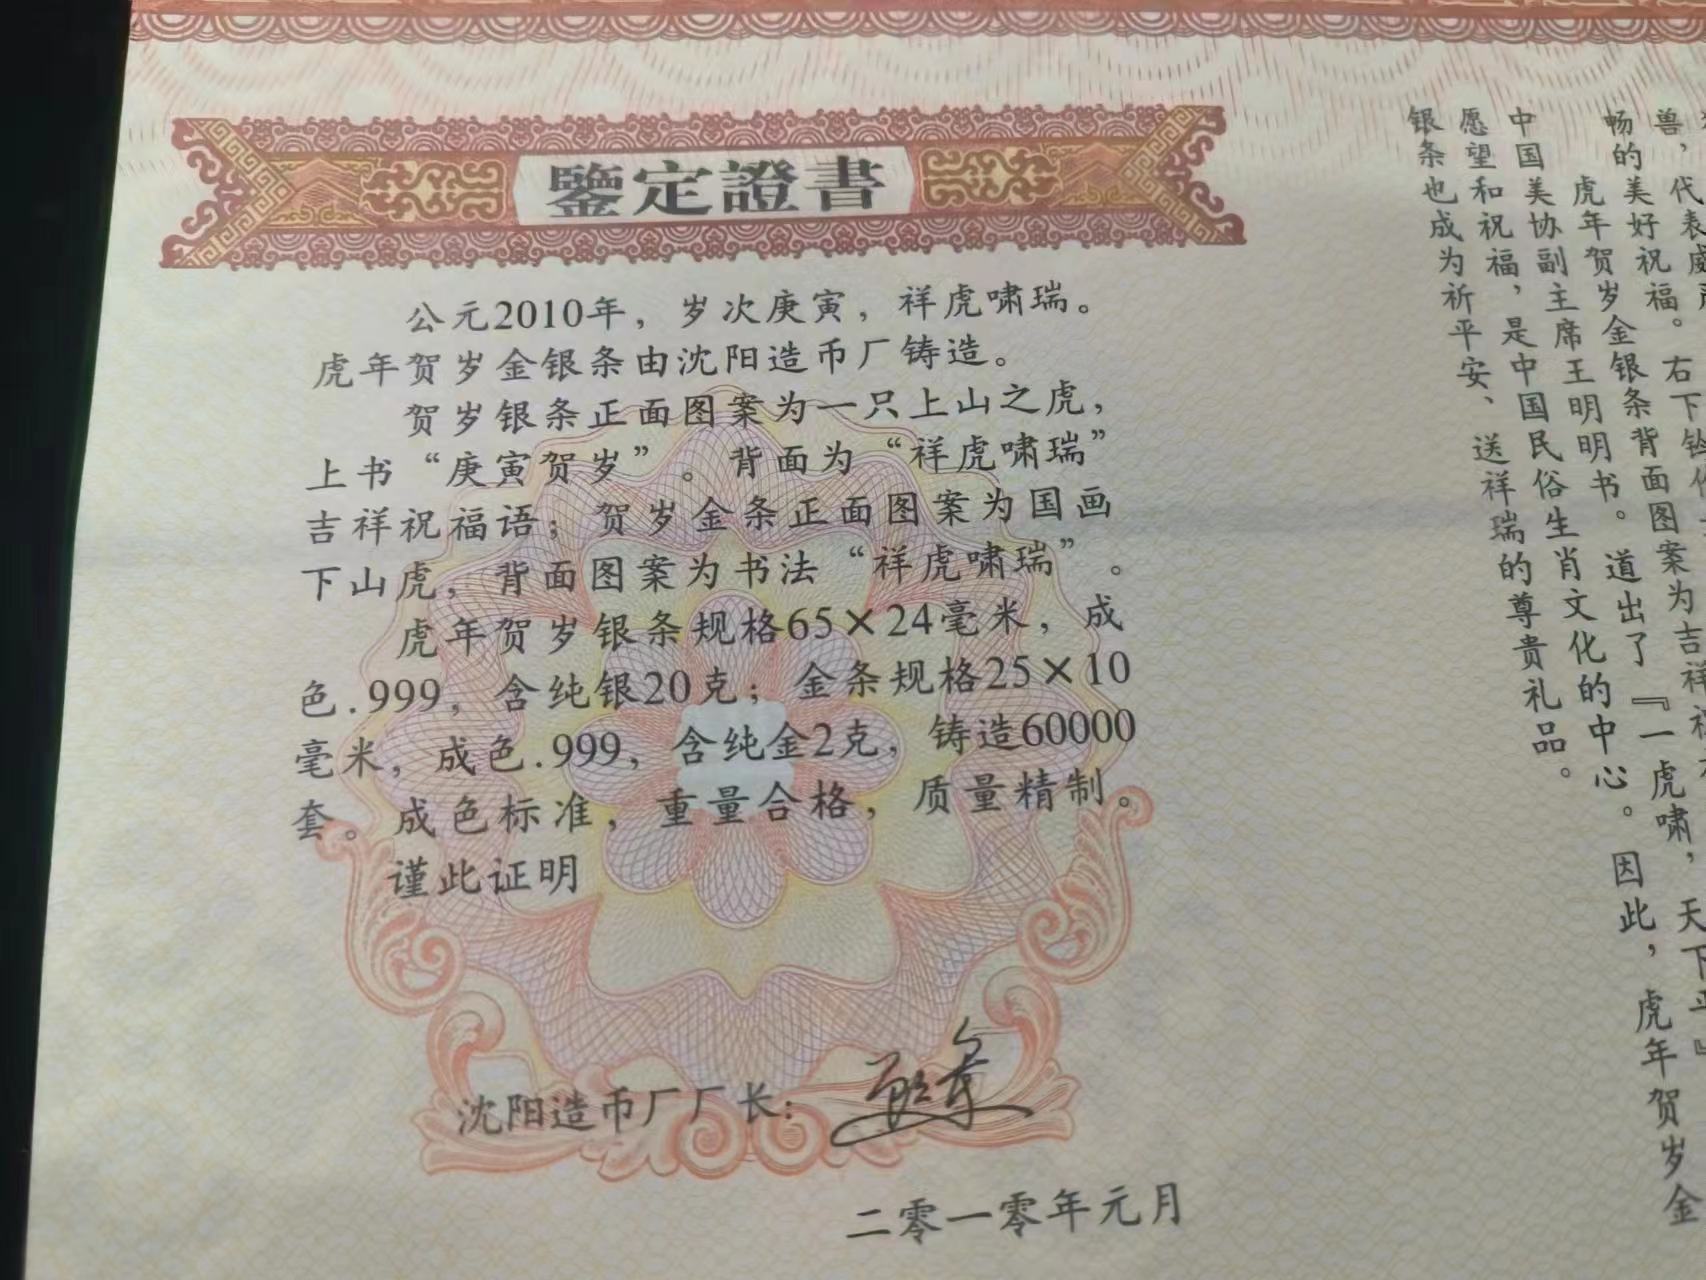 鑒定證書
公元2010年，岁次庚寅，祥虎啸瑞。
虎年贺岁金银条由沈阳造币厂铸造。
贺岁银条正面图案为一只上山之虎，
上书“庚寅贺岁”。背面为“祥虎啸瑞”
吉祥祝福语；贺岁金条正面图案为国画
下山虎，背面图案为书法“祥虎啸瑞”。
虎年贺岁银条规格65×24毫米，成
色.999，含纯银20克；金条规格25×10
毫米，成色.999，含纯金2克，铸造60000
套。成色标准，重量合格，质量精制。
谨此证明
沈阳造币厂厂长：
二零一零年元月
兽，代表威
畅的美好祝福。右下
虎年贺岁金银条背面图案为吉祥
中国美协副主席王明明书。道出了『一虎啸，天下平』
愿望和祝福，是中国民俗生肖文化的中心。因此，虎年贺岁金
银条也成为祈平安、送祥瑞的尊贵礼品。